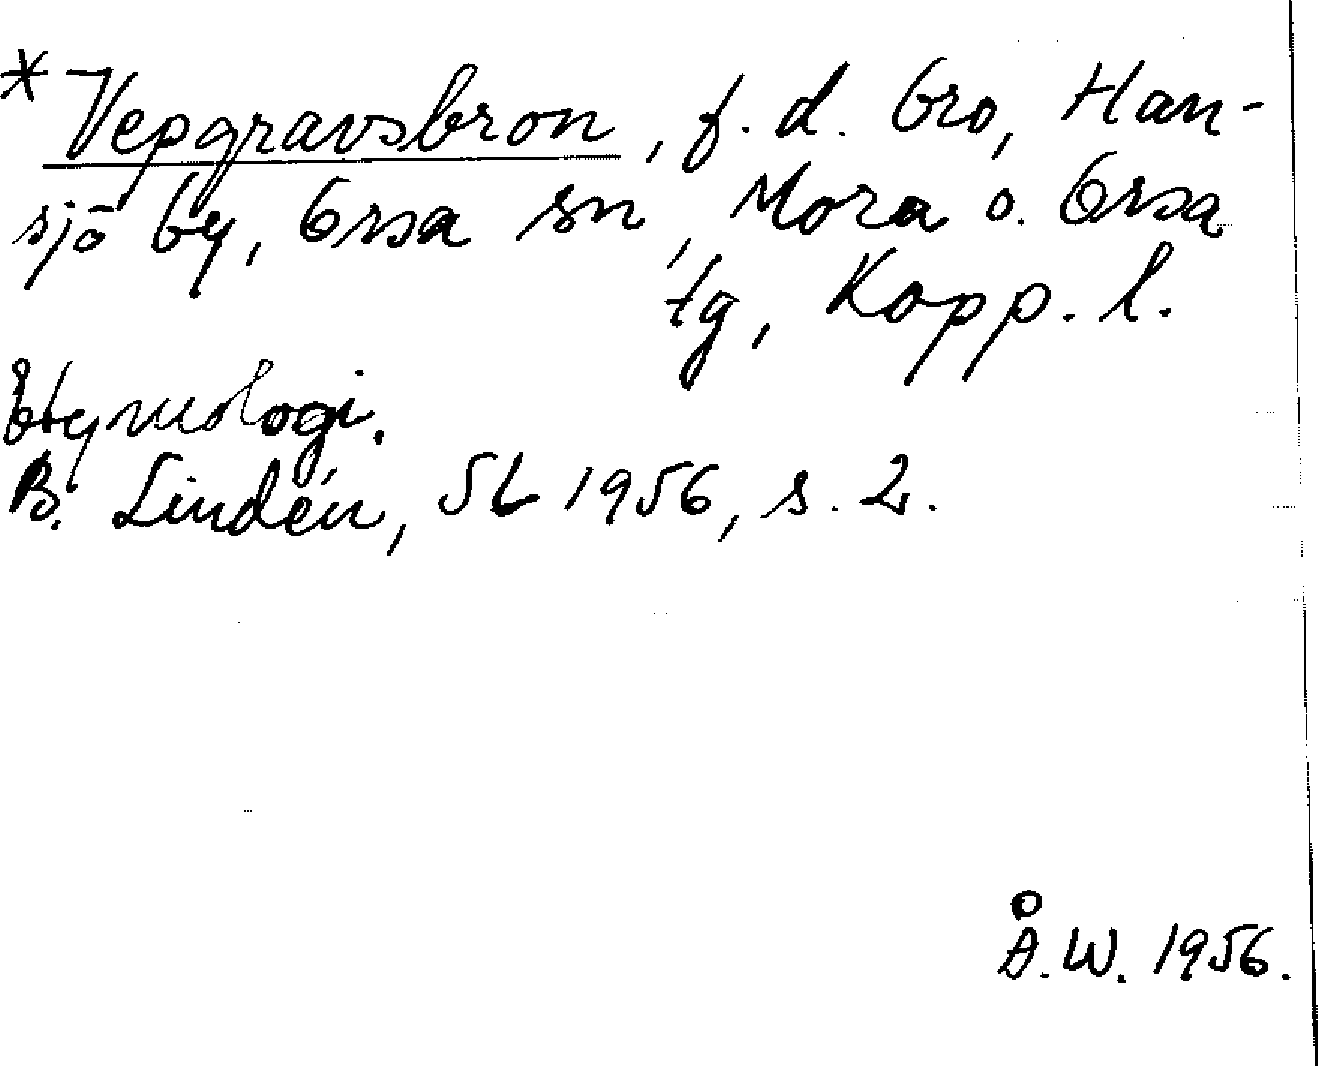 * Vepgravsbron, f.d. bro, Han-
sjö by, Orsa sn, Mora o. Orsa
tg, Kopp. l.
Etymologi.
B. Lindén, SL 1956, s. 2.
Å.W. 1956.